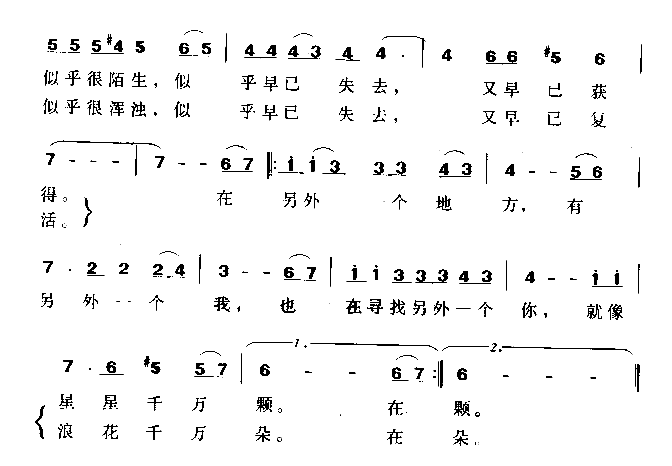 5 5 5 #4 5 6 5 | 4 4 4 3 4 4 · | 4 6 6 #5 6 |
似乎很陌生，似 乎早已 失去， 又早已获
似乎很浑浊，似 乎早已 失去， 又早已复
7 - - - | 7 - - 6 7 ‖: i i 3 3 3 4 3 | 4 - - 5 6 |
得。 在 另外 一个地 方，有
活。
7 · 2 2 2 4 | 3 - - 6 7 | i i 3 3 3 4 3 | 4 - - i i |
另外一个 我，也 在寻找另外一个 你，就像
1. 2.
7 · 6 #5 5 7 | 6 - - 6 7 :‖ 6 - - - |
星星千万 颗。 在 颗。
浪花千万 朵。 在 朵。